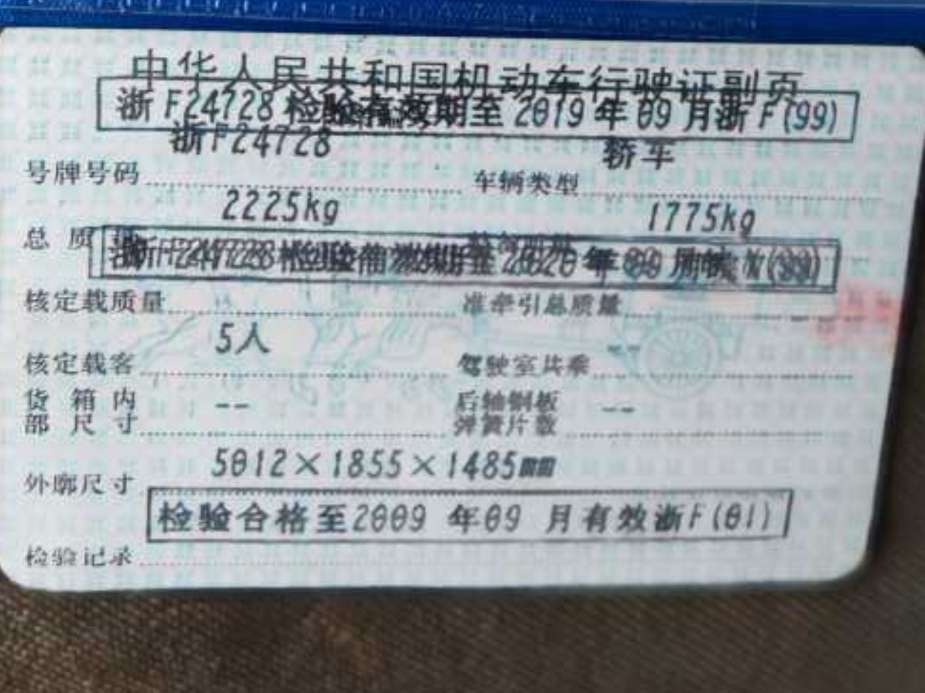 中华人民共和国机动车行驶证副页
浙F24728检验有效期至2019年09月浙F(99)
浙F24728 轿车
号牌号码 车辆类型
2225kg 1775kg
总质
2020年09月
核定载质量 准牵引总质量 --
5人 --
核定载客 驾驶室共乘
货箱内 -- 后轴钢板 --
部尺寸 弹簧片数
5012×1855×1485mm
外廓尺寸
检验合格至2009年09月有效浙F(01)
检验记录